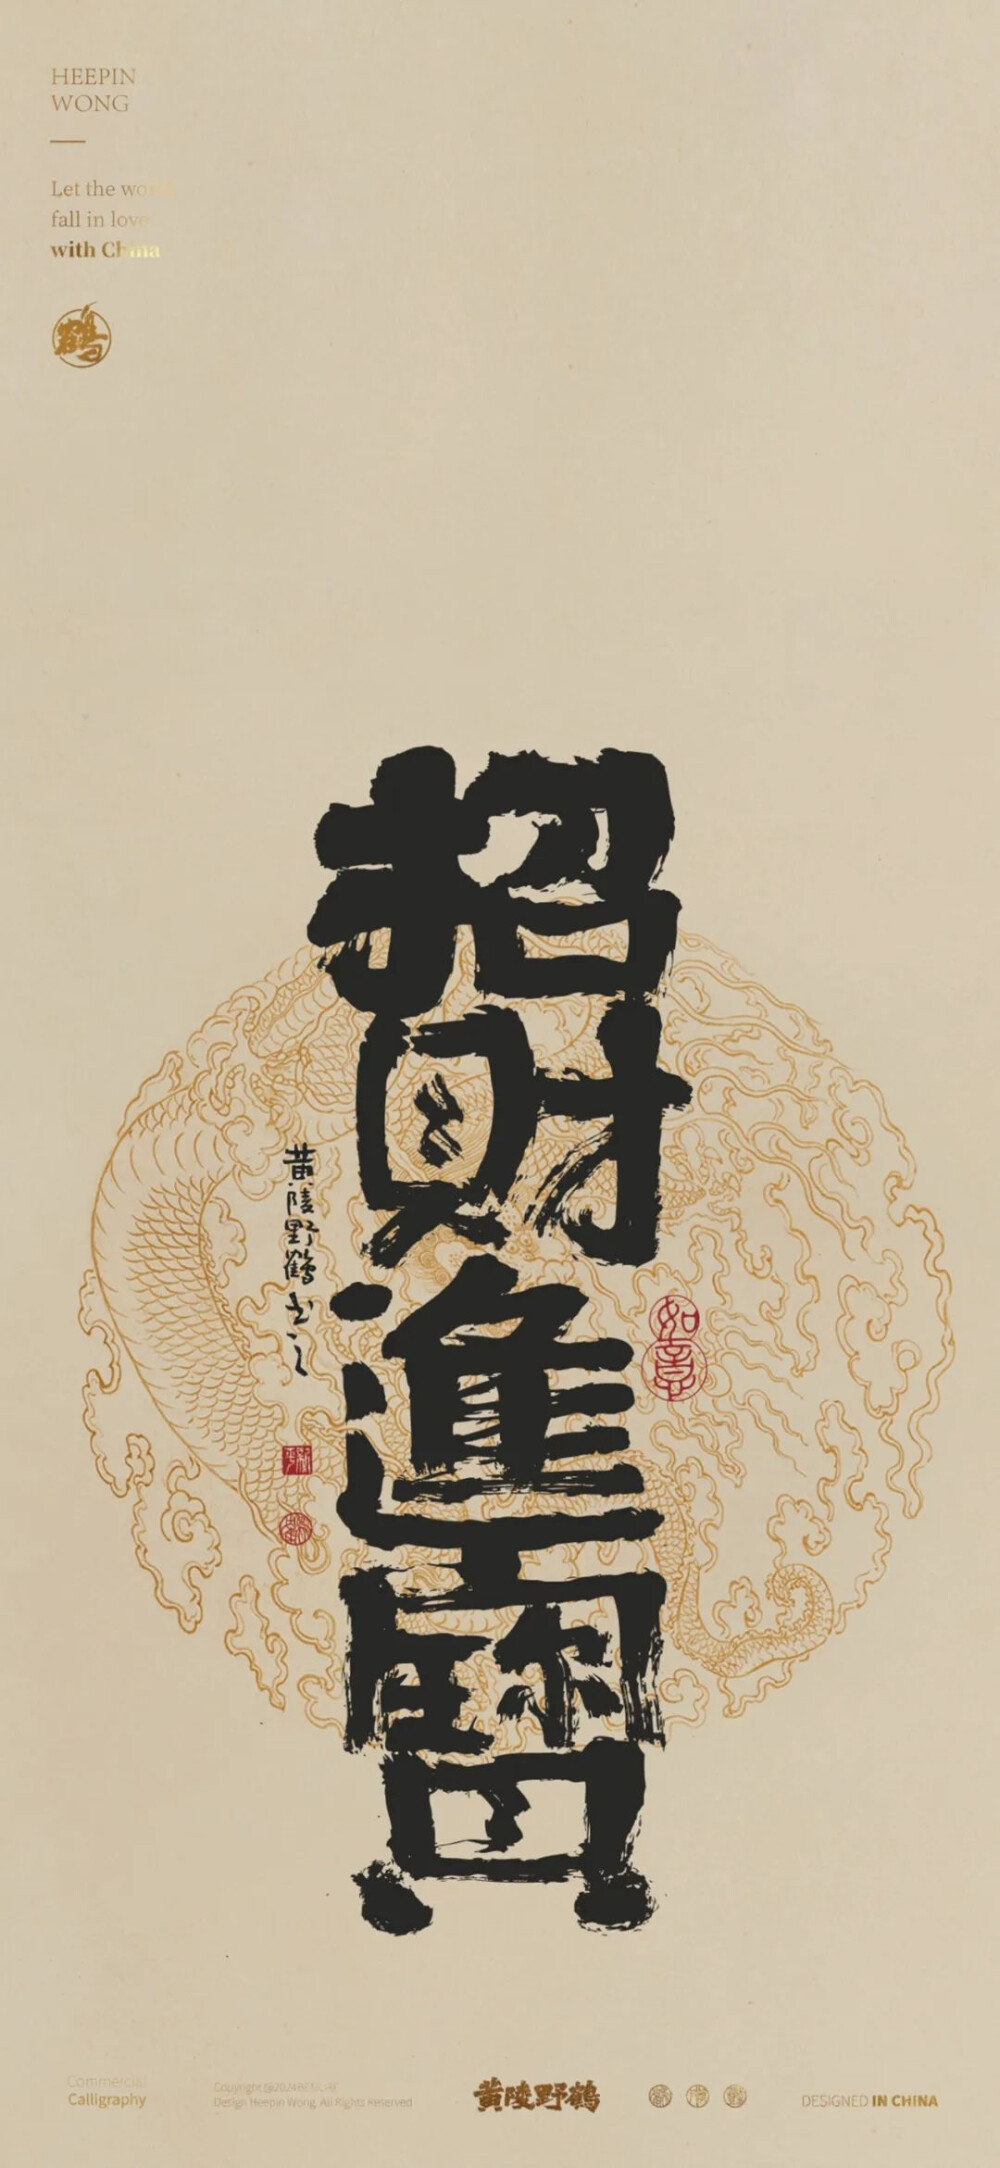 HEEPIN
WONG
Let the world
fall in love
with China
鶴
招財進寶
黄陵野鶴书之
如意
Commercial
Calligraphy
Design Heepin Wong, All Rights Reserved
黄陵野鶴
DESIGNED IN CHINA